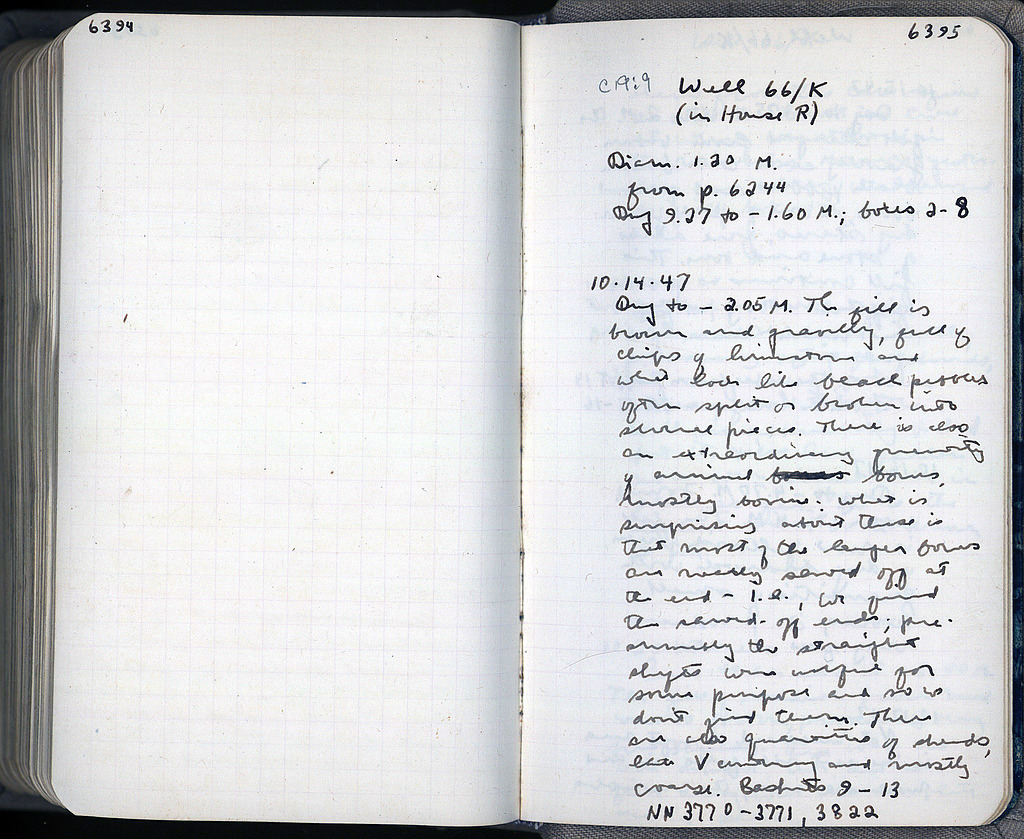 6394
6395
C 19:9 Well 66/K
(in House R)
Diam. 1.20 M.
from p. 6244
Dug 9.27 to -1.60 M.; boxes 2-8
10.14.47
Dug to - 2.05 M. The fill is
brown and gravelly, full of
chips of limestone and
what look like beach pebbles
often split or broken into
several pieces. There is also
an extraordinary quantity
of animal bones,
mostly bovine. What is
surprising about these is
that most of the larger bones
are neatly sawed off at
the end - i.e., we find
the sawed-off ends; pre-
sumably the straight
shafts were useful for
some purpose and so we
don't find them. There
are also quantities of sherds,
late V century and mostly
coarse. Baskets 9 - 13
NN 3770-3771, 3822